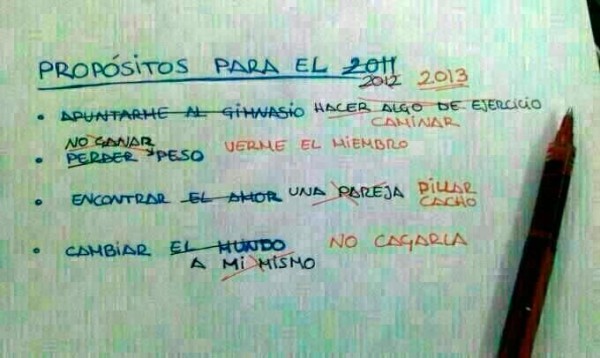 PROPÓSITOS PARA EL 2011
2012 2013
• APUNTARME AL GIMNASIO HACER ALGO DE EJERCICIO
CAMINAR
NO GANAR
• PERDER PESO VERME EL MIEMBRO
• ENCONTRAR EL AMOR UNA PAREJA PILLAR
CACHO
• CAMBIAR EL MUNDO NO CAGARLA
A MI MISMO